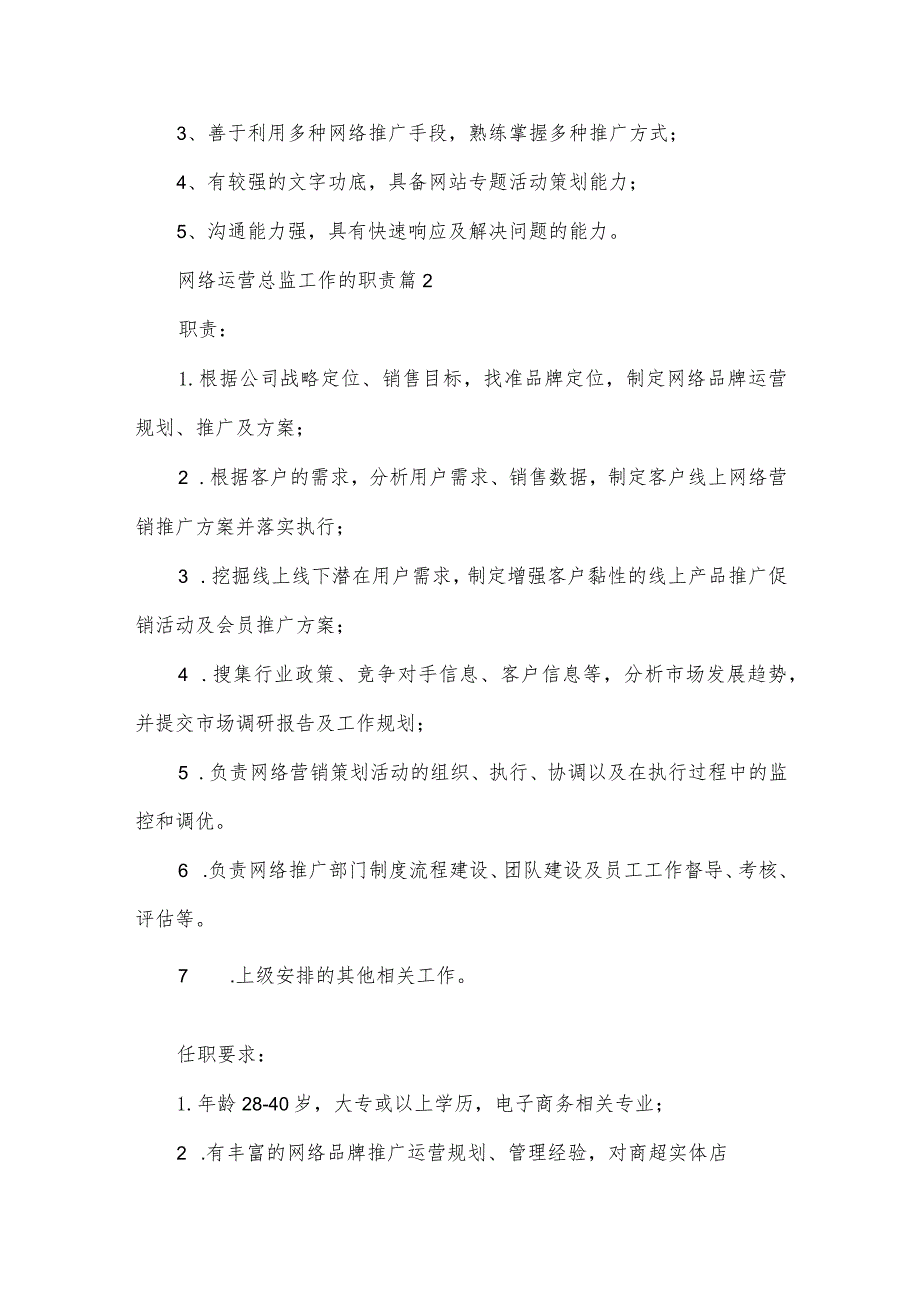 3、善于利用多种网络推广手段，熟练掌握多种推广方式；
4、有较强的文字功底，具备网站专题活动策划能力；
5、沟通能力强，具有快速响应及解决问题的能力。
网络运营总监工作的职责篇2
职责：
1.根据公司战略定位、销售目标，找准品牌定位，制定网络品牌运营
规划、推广及方案；
2 .根据客户的需求，分析用户需求、销售数据，制定客户线上网络营
销推广方案并落实执行；
3 .挖掘线上线下潜在用户需求，制定增强客户黏性的线上产品推广促
销活动及会员推广方案；
4 .搜集行业政策、竞争对手信息、客户信息等，分析市场发展趋势，
并提交市场调研报告及工作规划；
5 .负责网络营销策划活动的组织、执行、协调以及在执行过程中的监
控和调优。
6 .负责网络推广部门制度流程建设、团队建设及员工工作督导、考核、
评估等。
7 .上级安排的其他相关工作。
任职要求：
1.年龄28-40岁，大专或以上学历，电子商务相关专业；
2 .有丰富的网络品牌推广运营规划、管理经验，对商超实体店